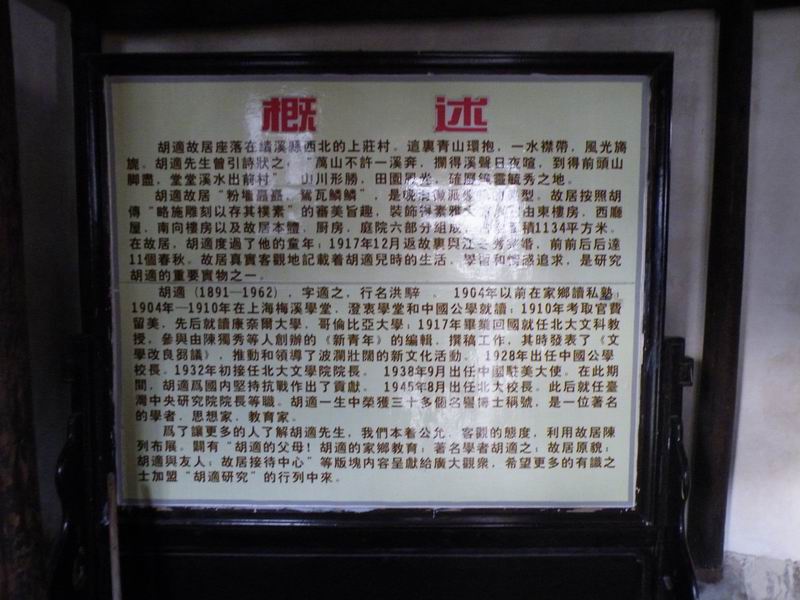 概 述
胡適故居座落在績溪縣西北的上莊村。這裏青山環抱，一水襟帶，風光旖
旎。胡適先生曾引詩狀之，“萬山不許一溪奔，攔得溪聲日夜喧，到得前頭山
脚盡，堂堂溪水出前村”，山川形勝，田園風光，確靈毓秀之地。
胡適故居“粉墻矗矗，鴛瓦鱗鱗”，是晚清徽派型。故居按照胡
傳“略施雕刻以存其樸素”的審美旨趣，裝飾得素雅由東樓房，西廳
屋，南向樓房以及故居本體，厨房，庭院六部分組成，積1134平方米。
在故居，胡適度過了他的童年；1917年12月返故裏與江冬秀完婚，前前后后達
11個春秋。故居真實客觀地記載着胡適兒時的生活，學術和情感追求，是研究
胡適的重要實物之一。
胡適（1891—1962），字適之，行名洪騂。1904年以前在家鄉讀私塾；
1904年—1910年在上海梅溪學堂，澄衷學堂和中國公學就讀；1910年考取官費
留美，先后就讀康奈爾大學，哥倫比亞大學；1917年畢業回國就任北大文科教
授，參與由陳獨秀等人創辦的《新青年》的編輯，撰稿工作，其時發表了《文
學改良芻議》，推動和領導了波瀾壯闊的新文化活動。1928年出任中國公學
校長。1932年初接任北大文學院院長。1938年9月出任中國駐美大使。在此期
間，胡適爲國内堅持抗戰作出了貢獻。1945年8月出任北大校長。此后就任臺
灣中央研究院院長等職。胡適一生中榮獲三十多個名譽博士稱號，是一位著名
的學者，思想家，教育家。
爲了讓更多的人了解胡適先生，我們本着公允，客觀的態度，利用故居陳
列布展。闢有“胡適的父母！胡適的家鄉教育；著名學者胡適之；故居原貌；
胡適與友人；故居接待中心”等版塊内容呈獻給廣大觀衆，希望更多的有識之
士加盟“胡適研究”的行列中來。